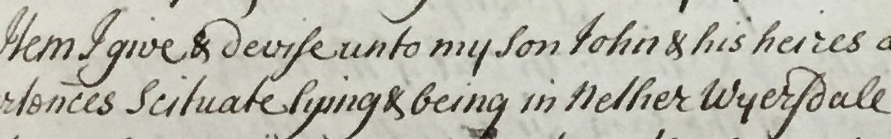 Item I give & devise unto my Son John & his heires a
rtences Scituate lying & being in Nether Wyersdale